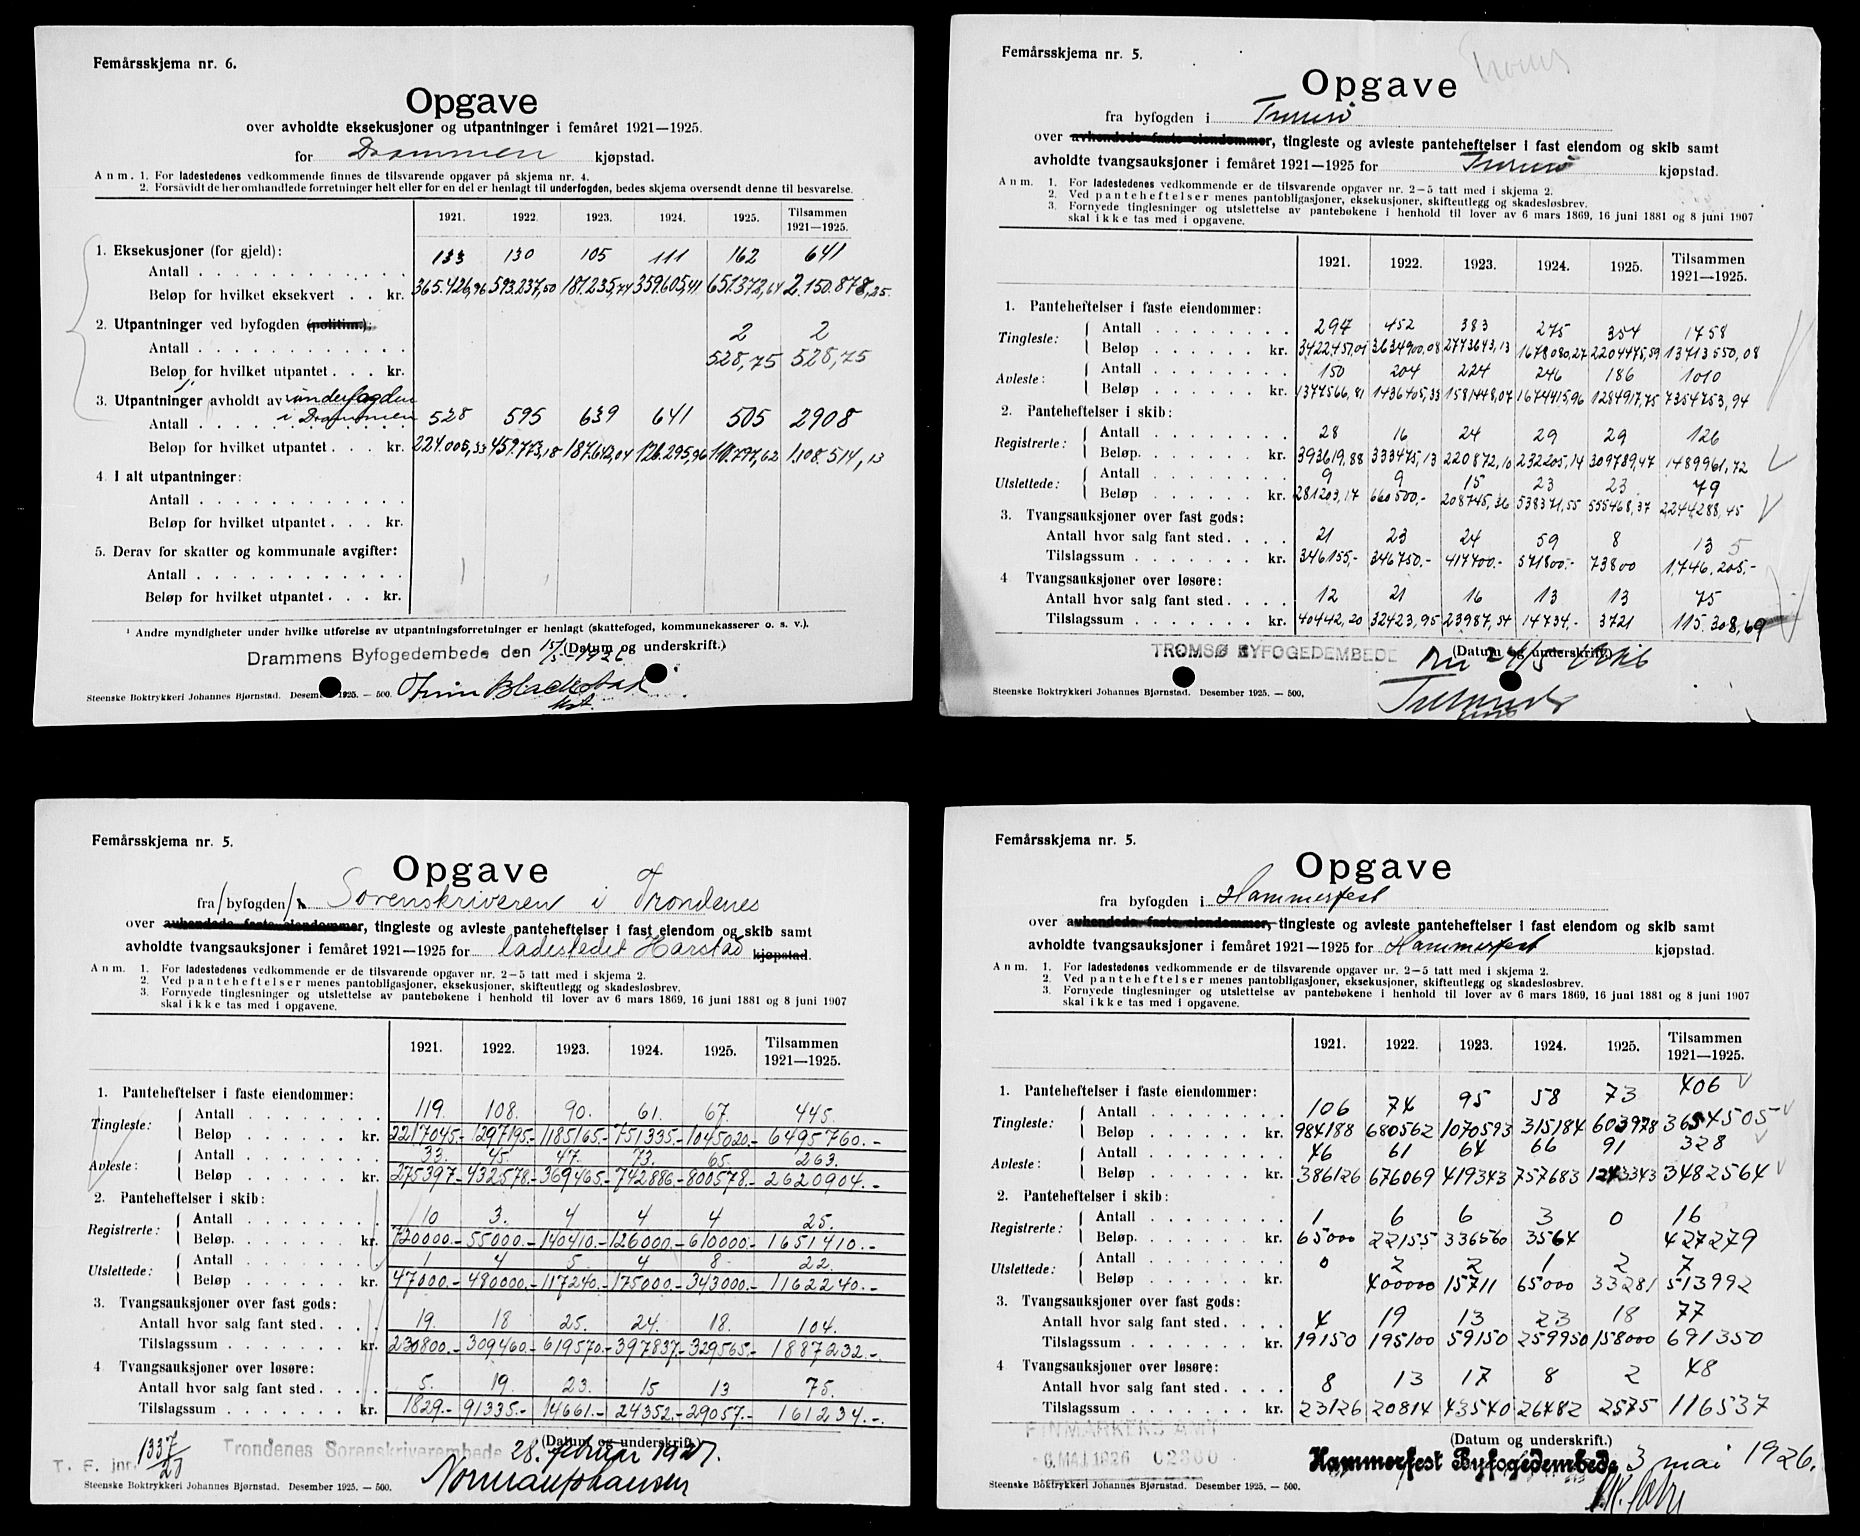 Femårsskjema nr. 6.
Opgave
over avholdte eksekusjoner og utpantninger i femåret 1921—1925.
for Drammen kjøpstad.
Anm. 1. For ladestedenes vedkommende finnes de tilsvarende opgaver på skjema nr. 4.
2. Forsåvidt de her omhandlede forretninger helt eller for en del er henlagt til underfogden, bedes skjema oversendt denne til besvarelse.
1921. 1922. 1923. 1924. 1925. Tilsammen 1921—1925.
1. Eksekusjoner (for gjeld):
Antall 133 130 105 111 162 641
Beløp for hvilket eksekvert kr. 365.426,96 593.237,50 181.235,74 359.605,41 651.372,64 2.150.878,25
2. Utpantninger ved byfogden (politim.):
Antall 2 2
Beløp for hvilket utpantet kr. 528,75 528,75
3. Utpantninger¹ avholdt av underfogden
i Drammen
Antall 528 595 639 641 505 2908
Beløp for hvilket utpantet kr. 224.005,33 459.773,18 187.642,04 126.295,96 110.797,62 1.108.514,13
4. I alt utpantninger:
Antall
Beløp for hvilket utpantet kr.
5. Derav for skatter og kommunale avgifter:
Antall
Beløp for hvilket utpantet kr.
¹ Andre myndigheter under hvilke utførelse av utpantningsforretninger er henlagt (skattefoged, kommunekasserer o. s. v.).
Drammens Byfogedembede den 15/5 1926
(Datum og underskrift.)
Steenske Boktrykkeri Johannes Bjørnstad. Desember 1925. — 500.
Femårsskjema nr. 5.
Troms
Opgave
fra byfogden i Tromsø
over avhendede faste eiendommer, tingleste og avleste panteheftelser i fast eiendom og skib samt
avholdte tvangsauksjoner i femåret 1921—1925 for Tromsø kjøpstad.
Anm. 1. For ladestedenes vedkommende er de tilsvarende opgaver nr. 2—5 tatt med i skjema 2.
2. Ved panteheftelser menes pantobligasjoner, eksekusjoner, skifteutlegg og skadesløsbrev.
3. Fornyede tinglesninger og utslettelse av pantebøkene i henhold til lover av 6 mars 1869, 16 juni 1881 og 8 juni 1907
skal ikke tas med i opgavene.
1921. 1922. 1923. 1924. 1925. Tilsammen 1921—1925.
1. Panteheftelser i faste eiendommer:
Tingleste: Antall 294 452 383 275 354 1758
Beløp kr. 3422457,01 3634900,08 2773643,13 1678080,27 2204475,59 13713550,08
Avleste: Antall 150 204 224 246 186 1010
Beløp kr. 1377566,81 1436405,33 1581448,07 1674415,96 1284917,75 7354753,94
2. Panteheftelser i skib:
Registrerte: Antall 28 16 24 29 29 126
Beløp. kr. 393619,88 333475,13 220872,10 232205,14 309789,47 1489961,72
Utslettede: Antall 9 9 15 23 23 79
Beløp kr. 281203,17 660500.- 208745,36 538371,55 555468,37 2244288,45
3. Tvangsauksjoner over fast gods:
Antall hvor salg fant sted 21 23 24 59 8 135
Tilslagssum kr. 346155,- 346750.- 417700.- 571800.- 73800 1,746.205,-
4 Tvangsauksjoner over løsøre:
Antall hvor salg fant sted 12 21 16 13 13 75
Tilslagssum kr. 40442,20 32423,95 23987,54 14734,- 3721 115.308,69
TROMSØ BYFOGEDEMBEDE
(Datum og underskrift.)
Steenske Boktrykkeri Johannes Bjørnstad. Desember 1925. — 500.
Femårsskjema nr. 5.
Opgave
fra/byfogden/ Sorenskriveren i Trondenes
over avhendede faste eiendommer, tingleste og avleste panteheftelser i fast eiendom og skib samt
avholdte tvangsauksjoner i femåret 1921—1925 for ladestedet Harstad kjøpstad.
Anm. 1. For ladestedenes vedkommende er de tilsvarende opgaver nr. 2—5 tatt med i skjema 2.
2. Ved panteheftelser menes pantobligasjoner, eksekusjoner, skifteutlegg og skadesløsbrev.
3. Fornyede tinglesninger og utslettelse av pantebøkene i henhold til lover av 6 mars 1869, 16 juni 1881 og 8 juni 1907
skal ikke tas med i opgavene.
1921. 1922. 1923. 1924. 1925. Tilsammen 1921—1925.
1. Panteheftelser i faste eiendommer:
Tingleste: Antall 119. 108. 90. 61. 67. 445.
Beløp kr. 2217045.- 1297195.- 1185165.- 751335.- 1045020.- 6495760.-
Avleste: Antall 33. 45. 47. 73. 65. 263.
Beløp kr. 275397.- 432578.- 369465.- 742886.- 800578.- 2620904.-
2. Panteheftelser i skib:
Registrerte: Antall 10 3. 4 4 4 25.
Beløp. kr. 720000.- 55000.- 140410.- 126000.- 610000.- 1651410.-
Utslettede: Antall 1 4 5. 4 8. 22.
Beløp kr. 47000.- 480000.- 117240.- 175000.- 343000.- 1162240.-
3. Tvangsauksjoner over fast gods:
Antall hvor salg fant sted 19. 18 25. 24. 18. 104.
Tilslagssum kr. 230800.- 309460.- 619570.- 397837.- 329565.- 1887232.-
4 Tvangsauksjoner over løsøre:
Antall hvor salg fant sted 5. 19. 23. 15 13 75.
Tilslagssum kr. 1829.- 91335.- 14661.- 24352.- 29057.- 161234.-
T. F. jnr. 1337/20
Trondenes Sorenskriverembede 28. februar 1927.
(Datum og underskrift.)
Norman Johansen
Steenske Boktrykkeri Johannes Bjørnstad. Desember 1925. — 500.
Femårsskjema nr. 5.
Opgave
fra byfogden i Hammerfest
over avhendede faste eiendommer, tingleste og avleste panteheftelser i fast eiendom og skib samt
avholdte tvangsauksjoner i femåret 1921—1925 for Hammerfest kjøpstad.
Anm. 1. For ladestedenes vedkommende er de tilsvarende opgaver nr. 2—5 tatt med i skjema 2.
2. Ved panteheftelser menes pantobligasjoner, eksekusjoner, skifteutlegg og skadesløsbrev.
3. Fornyede tinglesninger og utslettelse av pantebøkene i henhold til lover av 6 mars 1869, 16 juni 1881 og 8 juni 1907
skal ikke tas med i opgavene.
1921. 1922. 1923. 1924. 1925. Tilsammen 1921—1925.
1. Panteheftelser i faste eiendommer:
Tingleste: Antall 106 74 95 58 73 406
Beløp kr. 984188 680562 1070593 315184 603978 3654505
Avleste: Antall 46 61 64 66 91 328
Beløp kr. 386126 676069 419343 757683 1243343 3482564
2. Panteheftelser i skib:
Registrerte: Antall 1 6 6 3 0 16
Beløp. kr. 65000 22155 336560 3564 427279
Utslettede: Antall 0 2 2 1 2 7
Beløp kr. 400000 15711 65000 33281 513992
3. Tvangsauksjoner over fast gods:
Antall hvor salg fant sted 4 19 13 23 18 77
Tilslagssum kr. 19150 195100 59150 259950 158000 691350
4 Tvangsauksjoner over løsøre:
Antall hvor salg fant sted 8 13 17 8 2 48
Tilslagssum kr. 23126 20814 43540 26482 2575 116537
FINMARKENS AMT
6. MAI 1926 02300
(Datum og underskrift.)
Hammerfest Byfogedembede 3 mai 1926.
Steenske Boktrykkeri Johannes Bjørnstad. Desember 1925. — 500.